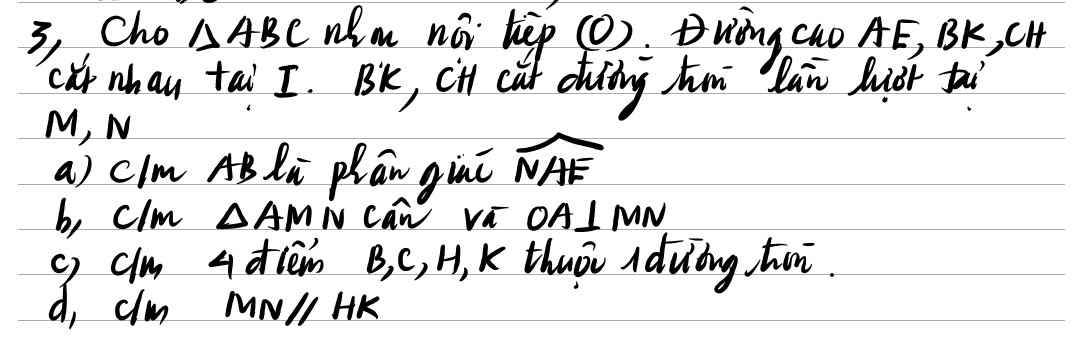 3, Cho △ABC nhọn nội tiếp (O). Đường cao AE, BK, CH
cắt nhau tại I. BK, CH cắt đường tròn lần lượt tại
M, N
a) c/m AB là phân giác \widehat{NAE}
b, c/m △AMN cân và OA⊥MN
c, c/m 4 điểm B,C,H,K thuộc 1 đường tròn.
d, c/m MN // HK